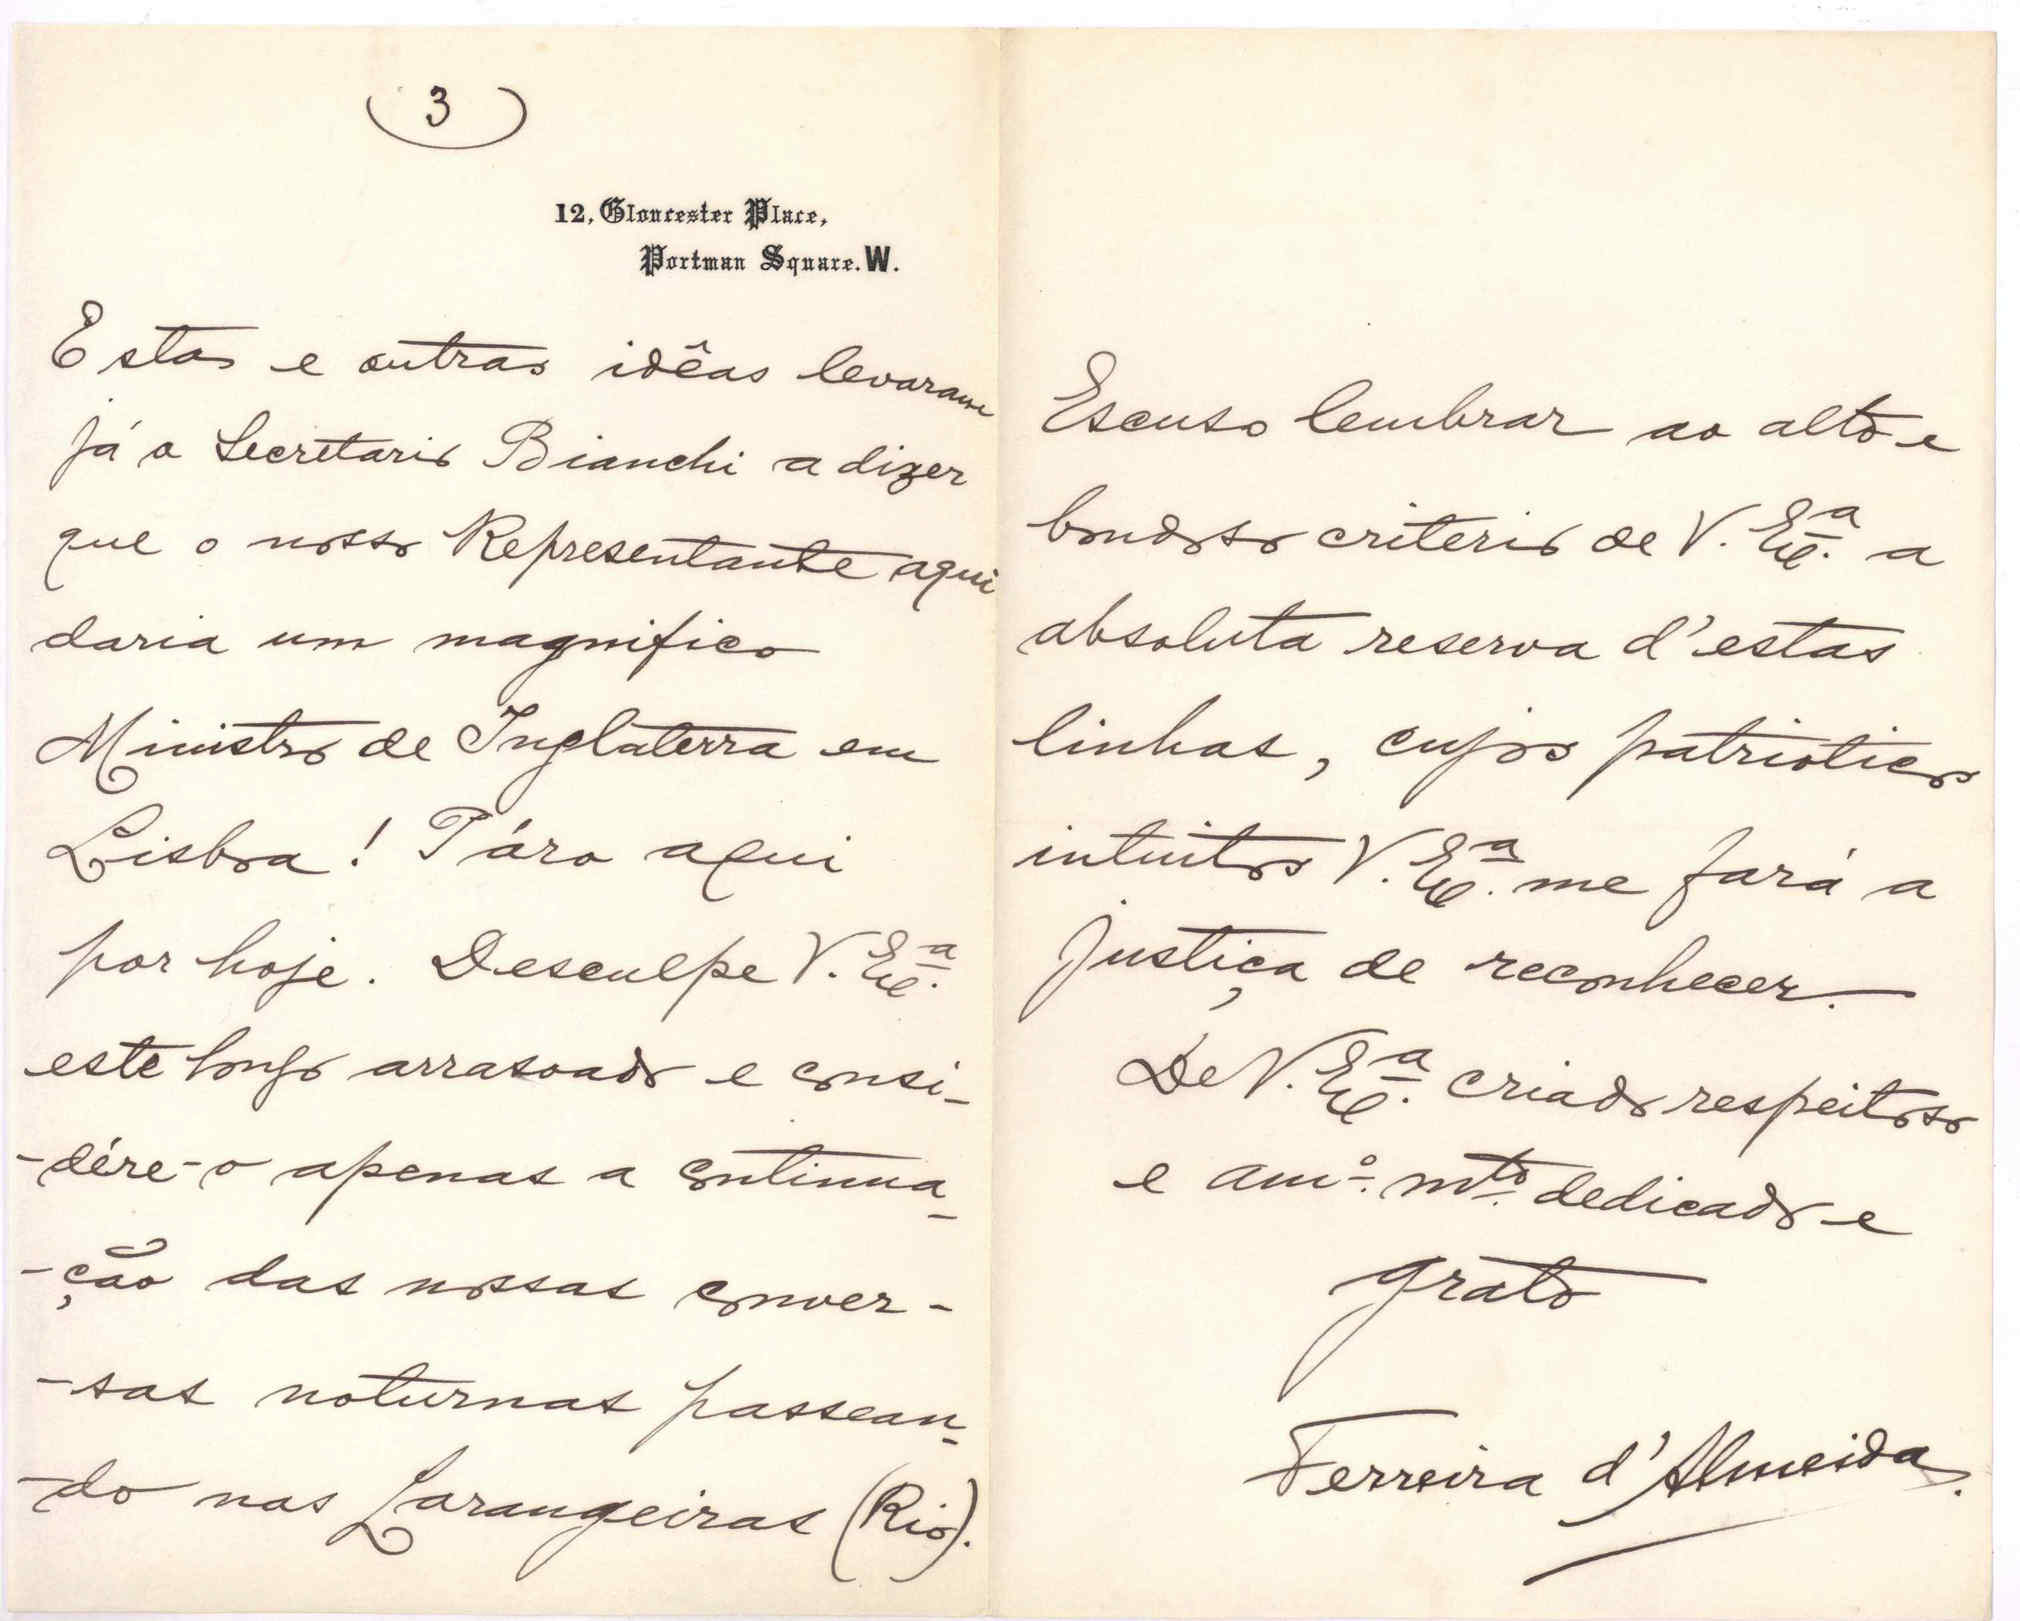 (3)
12, Gloucester Place,
Portman Square. W.
Estas e outras idêas levaram
já o Secretario Bianchi a dizer
que o nosso Representante aqui
daria um magnifico
Ministro de Inglaterra em
Lisboa! Páro aqui
por hoje. Desculpe V. Exª.
este longo arrasoado e consi-
-dére-o apenas a continua-
-ção das nossas conver-
-sas noturnas passean-
-do nas Larangeiras (Rio).
Escuso lembrar ao alto e
bondoso criterio de V. Exª. a
absoluta reserva d'estas
linhas, cujos patrioticos
intuitos V. Exª. me fará a
justiça de reconhecer.
De V. Exª. criado respeitoso
e amº. mto. dedicado e
grato
Ferreira d'Almeida.